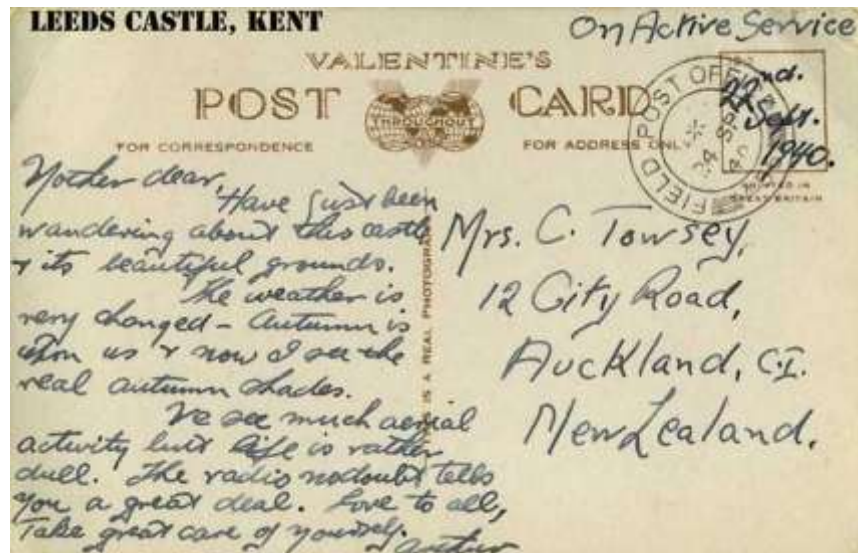 LEEDS CASTLE, KENT
On Active Service
VALENTINE'S
POST CARD
THROUGHOUT
FOR CORRESPONDENCE
FOR ADDRESS ONLY
FIELD POST OFFICE
22nd.
Sept.
1940.
PRINTED IN
GREAT BRITAIN
Mother dear,
Have just been
wandering about this castle
& its beautiful grounds.
The weather is
very changed - Autumn is
upon us & now I see the
real autumn shades.
We see much aerial
activity but life is rather
dull. The radio nodoubt tells
you a great deal. Love to all,
Take great care of yourself.
Arthur
THIS IS A REAL PHOTOGRAPH
Mrs. C. Towsey,
12 City Road,
Auckland, C.I.
New Zealand.